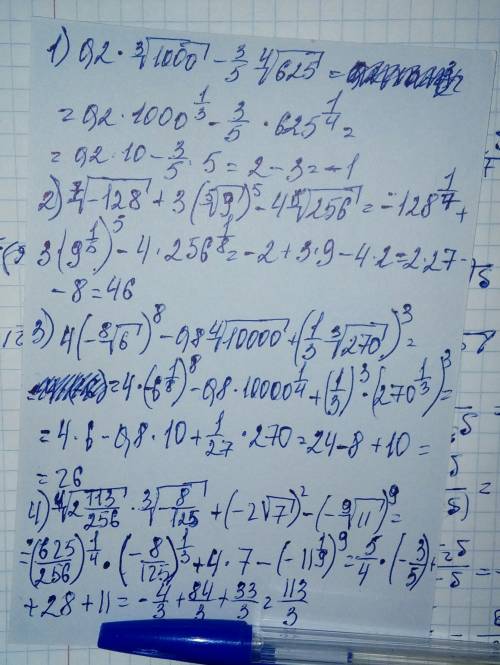 1) 0,2 · ∛1000 − 3/5 ∜625 =
= 0,2 · 1000^(1/3) − 3/5 · 625^(1/4) =
= 0,2 · 10 − 3/5 · 5 = 2 − 3 = −1
2) ⁷√−128 + 3(⁵√9)^5 − 4 ⁸√256 = −128^(1/7) +
3(9^(1/5))^5 − 4 · 256^(1/8) = −2 + 3·9 − 4·2 = 2·27 −
− 8 = 46
3) 4(−⁸√6)^8 − 0,8 ∜10000 + (1/3 · ∛270)^3 =
= 4·(6^(1/8))^8 − 0,8·10000^(1/4) + (1/3)^3 · (270^(1/3))^3 =
= 4·6 − 0,8·10 + 1/27 · 270 = 24 − 8 + 10 =
= 26
4) ∜2 113/256 · ∛−8/125 + (−2√7)^2 − (−⁹√11)^9 =
= (625/256)^(1/4) · (−8/125)^(1/3) + 4·7 − (−11^(1/9))^9 = 5/4 · (−3/5) +
+ 28 + 11 = −4/3 + 84/3 + 33/3 = 113/3